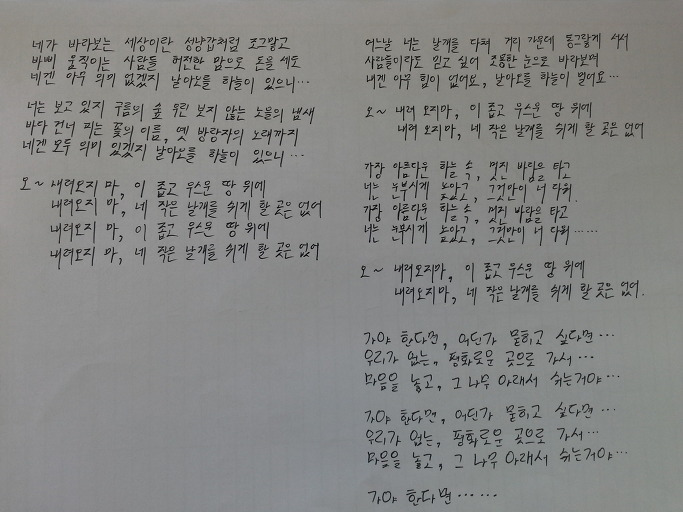 네가 바라보는 세상이란 성냥갑처럼 조그맣고
바삐 움직이는 사람들 허전한 맘으로 돈을 세도
네겐 아무 의미 없겠지 날아오를 하늘이 있으니…
너는 보고 있지 구름의 숲 우린 보지 않는 노을의 냄새
바다 건너 피는 꽃의 이름, 옛 방랑자의 노래까지
네겐 모두 의미 있겠지 날아오를 하늘이 있으니…
오~ 내려오지 마, 이 좁고 우스운 땅 위에
내려오지 마, 네 작은 날개를 쉬게 할 곳은 없어
내려오지 마, 이 좁고 우스운 땅 위에
내려오지 마, 네 작은 날개를 쉬게 할 곳은 없어
어느날 너는 날개를 다쳐 거리 가운데 동그랗게 서서
사람들이라도 믿고 싶어 조용한 눈으로 바라보며
내겐 아무 힘이 없어요, 날아오를 하늘이 멀어요…
오~ 내려오지마, 이 좁고 우스운 땅 위에
내려오지마, 네 작은 날개를 쉬게 할 곳은 없어
가장 아름다운 하늘 속, 멋진 바람을 타고
너는 눈부시게 높았고, 그것만이 너 다워.
가장 아름다운 하늘 속, 멋진 바람을 타고
너는 눈부시게 높았고, 그것만이 너 다워……
오~ 내려오지마, 이 좁고 우스운 땅 위에
내려오지마, 네 작은 날개를 쉬게 할 곳은 없어.
가야 한다면, 어딘가 묻히고 싶다면…
우리가 없는, 평화로운 곳으로 가서…
마음을 놓고, 그 나무 아래서 쉬는거야…
가야 한다면, 어딘가 묻히고 싶다면…
우리가 없는, 평화로운 곳으로 가서…
마음을 놓고, 그 나무 아래서 쉬는거야…
가야 한다면……